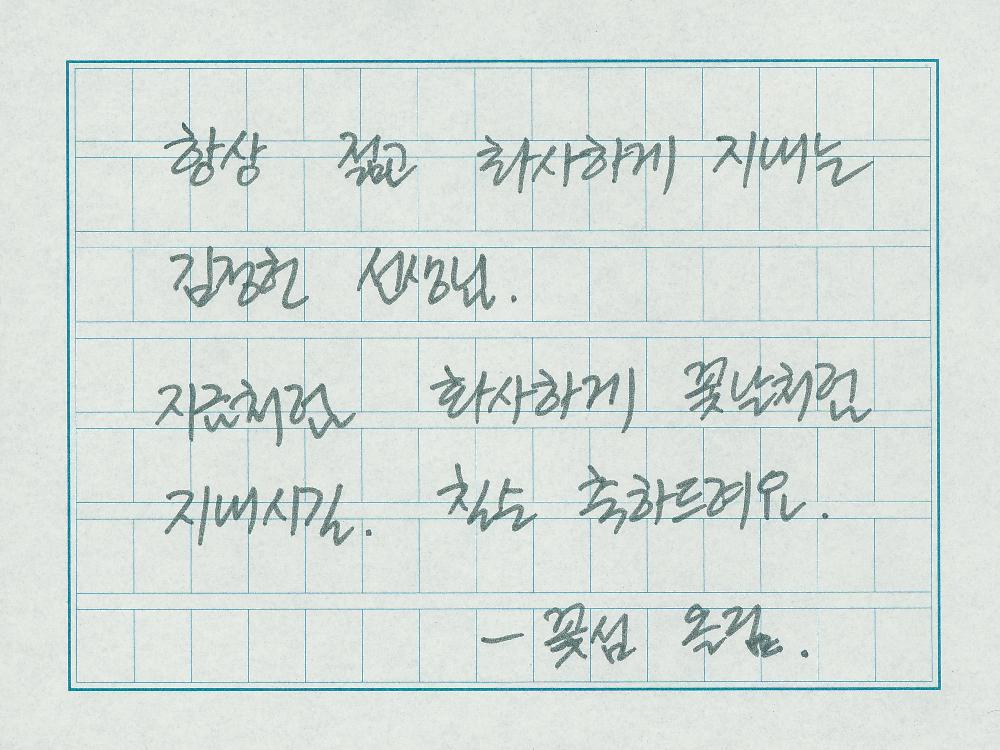 항상 젊고 화사하게 지내는
김정헌 선생님.
지금처럼 화사하게 꽃날처럼
지내시길. 칠순 축하드려요.
— 꽃섬 올림.